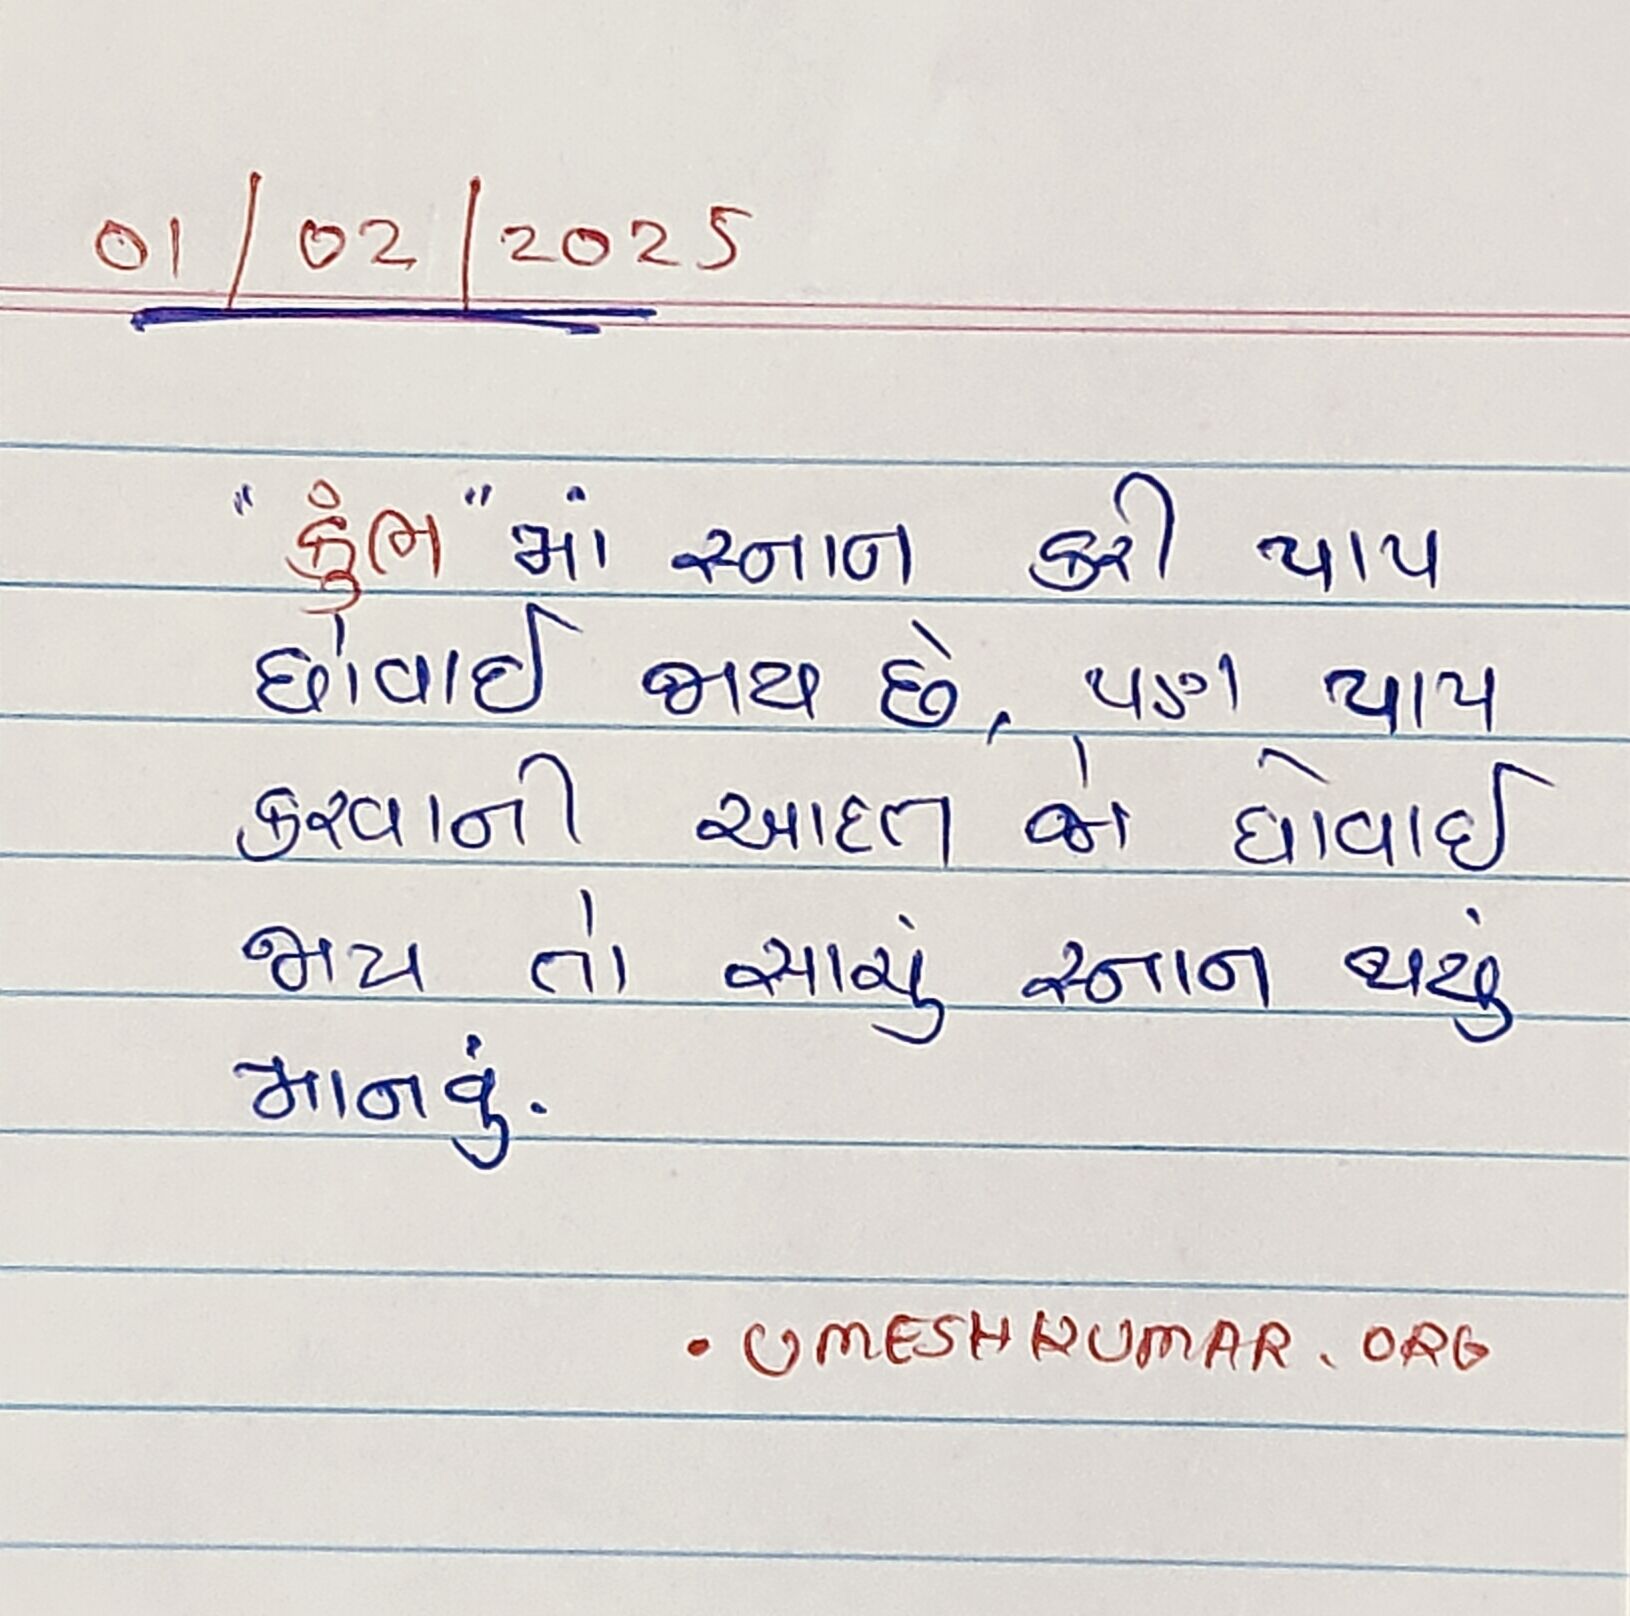 01/02/2025
"કુંભ"માં સ્નાન કરી પાપ
ધોવાઈ જાય છે, પણ પાપ
કરવાની આદત જો ધોવાઈ
જાય તો સાચું સ્નાન થયું
માનવું.
. UMESHKUMAR. ORG